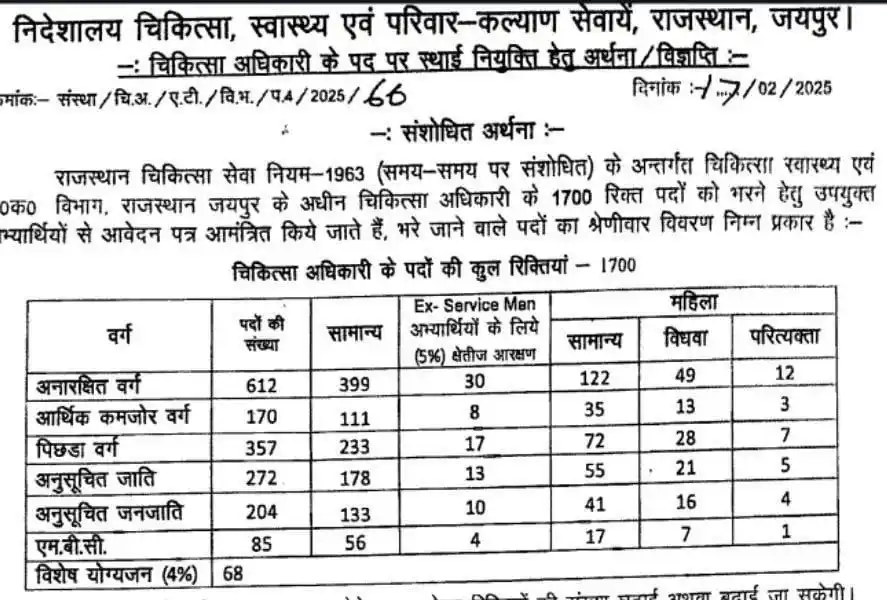 निदेशालय चिकित्सा, स्वास्थ्य एवं परिवार–कल्याण सेवायें, राजस्थान, जयपुर।
–: चिकित्सा अधिकारी के पद पर स्थाई नियुक्ति हेतु अर्थना/विज्ञप्ति :–
मांकः– संस्था/चि.अ./ए.टी./वि.भ./प.4/2025/66 दिनांक :-17/02/2025
–: संशोधित अर्थना :–
राजस्थान चिकित्सा सेवा नियम–1963 (समय–समय पर संशोधित) के अन्तर्गत चिकित्सा स्वास्थ्य एवं
0क0 विभाग, राजस्थान जयपुर के अधीन चिकित्सा अधिकारी के 1700 रिक्त पदों को भरने हेतु उपयुक्त
भ्यार्थियों से आवेदन पत्र आमंत्रित किये जाते हैं, भरे जाने वाले पदों का श्रेणीवार विवरण निम्न प्रकार है :–
चिकित्सा अधिकारी के पदों की कुल रिक्तियां – 1700
वर्ग पदों की संख्या सामान्य Ex- Service Men अभ्यार्थियों के लिये (5%) क्षेतीज आरक्षण महिला
सामान्य विधवा परित्यक्ता
अनारक्षित वर्ग 612 399 30 122 49 12
आर्थिक कमजोर वर्ग 170 111 8 35 13 3
पिछडा वर्ग 357 233 17 72 28 7
अनुसूचित जाति 272 178 13 55 21 5
अनुसूचित जनजाति 204 133 10 41 16 4
एम.बी.सी. 85 56 4 17 7 1
विशेष योग्यजन (4%) 68
अथवा बढाई जा सकेगी।